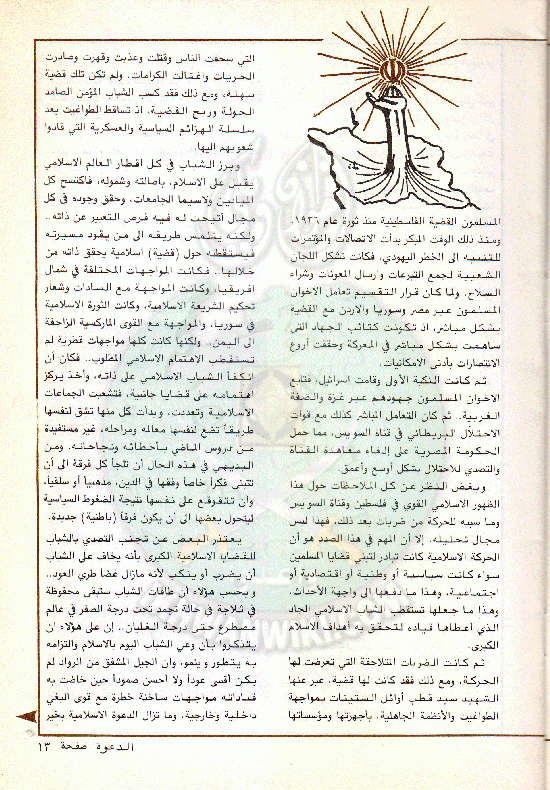 المسلمون القضية الفلسطينية منذ ثورة عام ١٩٣٦،
ومنذ ذلك الوقت المبكر بدأت الاتصالات والمؤتمرات
للتنبيه الى الخطر اليهودي، فكانت تشكل اللجان
الشعبية لجمع التبرعات وارسال المعونات وشراء
السلاح. ولما كان قرار التقسيم تعامل الاخوان
المسلمون عبر مصر وسوريا والاردن مع القضية
بشكل مباشر، اذ تكونت كتائب الجهاد التي
ساهمت بشكل مباشر في المعركة وحققت أروع
الانتصارات بأدنى الامكانيات.
ثم كانت النكبة الأولى وقامت اسرائيل، فتابع
الاخوان المسلمون جهودهم عبر غزة والضفة
الغربية.. ثم كان التعامل المباشر كذلك مع قوات
الاحتلال البريطاني في قناة السويس، مما حمل
الحكومة المصرية على إلغاء معاهدة القناة
والتصدي للاحتلال بشكل أوسع وأعمق.
وبغض النظر عن كل الملاحظات حول هذا
الظهور الاسلامي القوي في فلسطين وقناة السويس
وما سببه للحركة من ضربات بعد ذلك، فهذا ليس
مجال تحليله، إلا أن المهم في هذا الصدد هو أن
الحركة الاسلامية كانت تبادر لتبني قضايا المسلمين
سواء كانت سياسية أو وطنية أو اقتصادية أو
اجتماعية، وهذا ما دفعها الى واجهة الأحداث،
وهذا ما جعلها تستقطب الشباب الاسلامي الجاد
الذي أعطاها قياده لتحقق به أهداف الاسلام
الكبرى.
ثم كانت الضربات المتلاحقة التي تعرضت لها
الحركة، ومع ذلك فقد كانت لها قضية، عبر عنها
الشهيد سيد قطب أوائل الستينات بمواجهة
الطواغيت والأنظمة الجاهلية، بأجهزتها ومؤسساتها
التي سحقت الناس وقتلت وعذبت وقهرت وصادرت
الحريات واغتالت الكرامات، ولم تكن تلك قضية
سهلة، ومع ذلك فقد كسب الشباب المؤمن الصامد
الجولة وربح القضية، اذ تساقط الطواغيت بعد
سلسلة الهزائم السياسية والعسكرية التي قادوا
شعوبهم اليها.
وبرز الشباب في كل اقطار العالم الاسلامي
يقبل على الاسلام، باصالته وشموله، فاكتسح كل
الميادين ولاسيما الجامعات، وحقق وجوده في كل
مجال أتيحت له فيه فرص التعبير عن ذاته..
ولكنه يتلمس طريقه الى من يقود مسيرته
فيستقطبه حول (قضية) اسلامية يحقق ذاته من
خلالها.. فكانت المواجهات المختلفة في شمال
افريقيا، وكانت المواجهة مع السادات وشعار
تحكيم الشريعة الاسلامية، وكانت الثورة الاسلامية
في سوريا، والمواجهة مع القوى الماركسية الزاحفة
الى اليمن.. ولكنها كانت كلها مواجهات قطرية لم
تستقطب الاهتمام الاسلامي المطلوب.. فكان أن
انكفأ الشباب الاسلامي على ذاته، وأخذ يركز
اهتمامه على قضايا جانبية، فتشعبت الجماعات
الاسلامية وتعددت، وبدأت كل منها تشق لنفسها
طريقاً تضع لنفسها معالمه ومراحله، غير مستفيدة
من دروس الماضي بأخطائه ونجاحاته. ومن
البديهي في هذه الحال أن تلجأ كل فرقة الى أن
تتبنى فكراً خاصاً وفقها في الدين، مذهبياً أو سلفياً،
وأن تتقوقع على نفسها نتيجة الضغوط السياسية
ليتحول بعضها الى أن يكون فرقاً (باطنية) جديدة.
يعتذر البعض عن تجنب التصدي بالشباب
للقضايا الاسلامية الكبرى بأنه يخاف على الشباب
أن يضرب أو ينكب لأنه مازال غضاً طري العود..
ويحسب هؤلاء أن طاقات الشباب ستبقى محفوظة
في ثلاجة في حالة تجمد تحت درجة الصفر في عالم
مصطرع حتى درجة الغليان.. إن على هؤلاء ان
يتذكروا بأن وعي الشباب اليوم بالاسلام والتزامه
به يتطور وينمو، وان الجيل المشفق من الرواد لم
يكن أقسى عوداً ولا أحسن صموداً حين خاضت به
قياداته مواجهات ساخنة خطرة مع قوى البغي
داخلية وخارجية، وما تزال الدعوة الاسلامية بخير
الدعوة صفحة ١٣